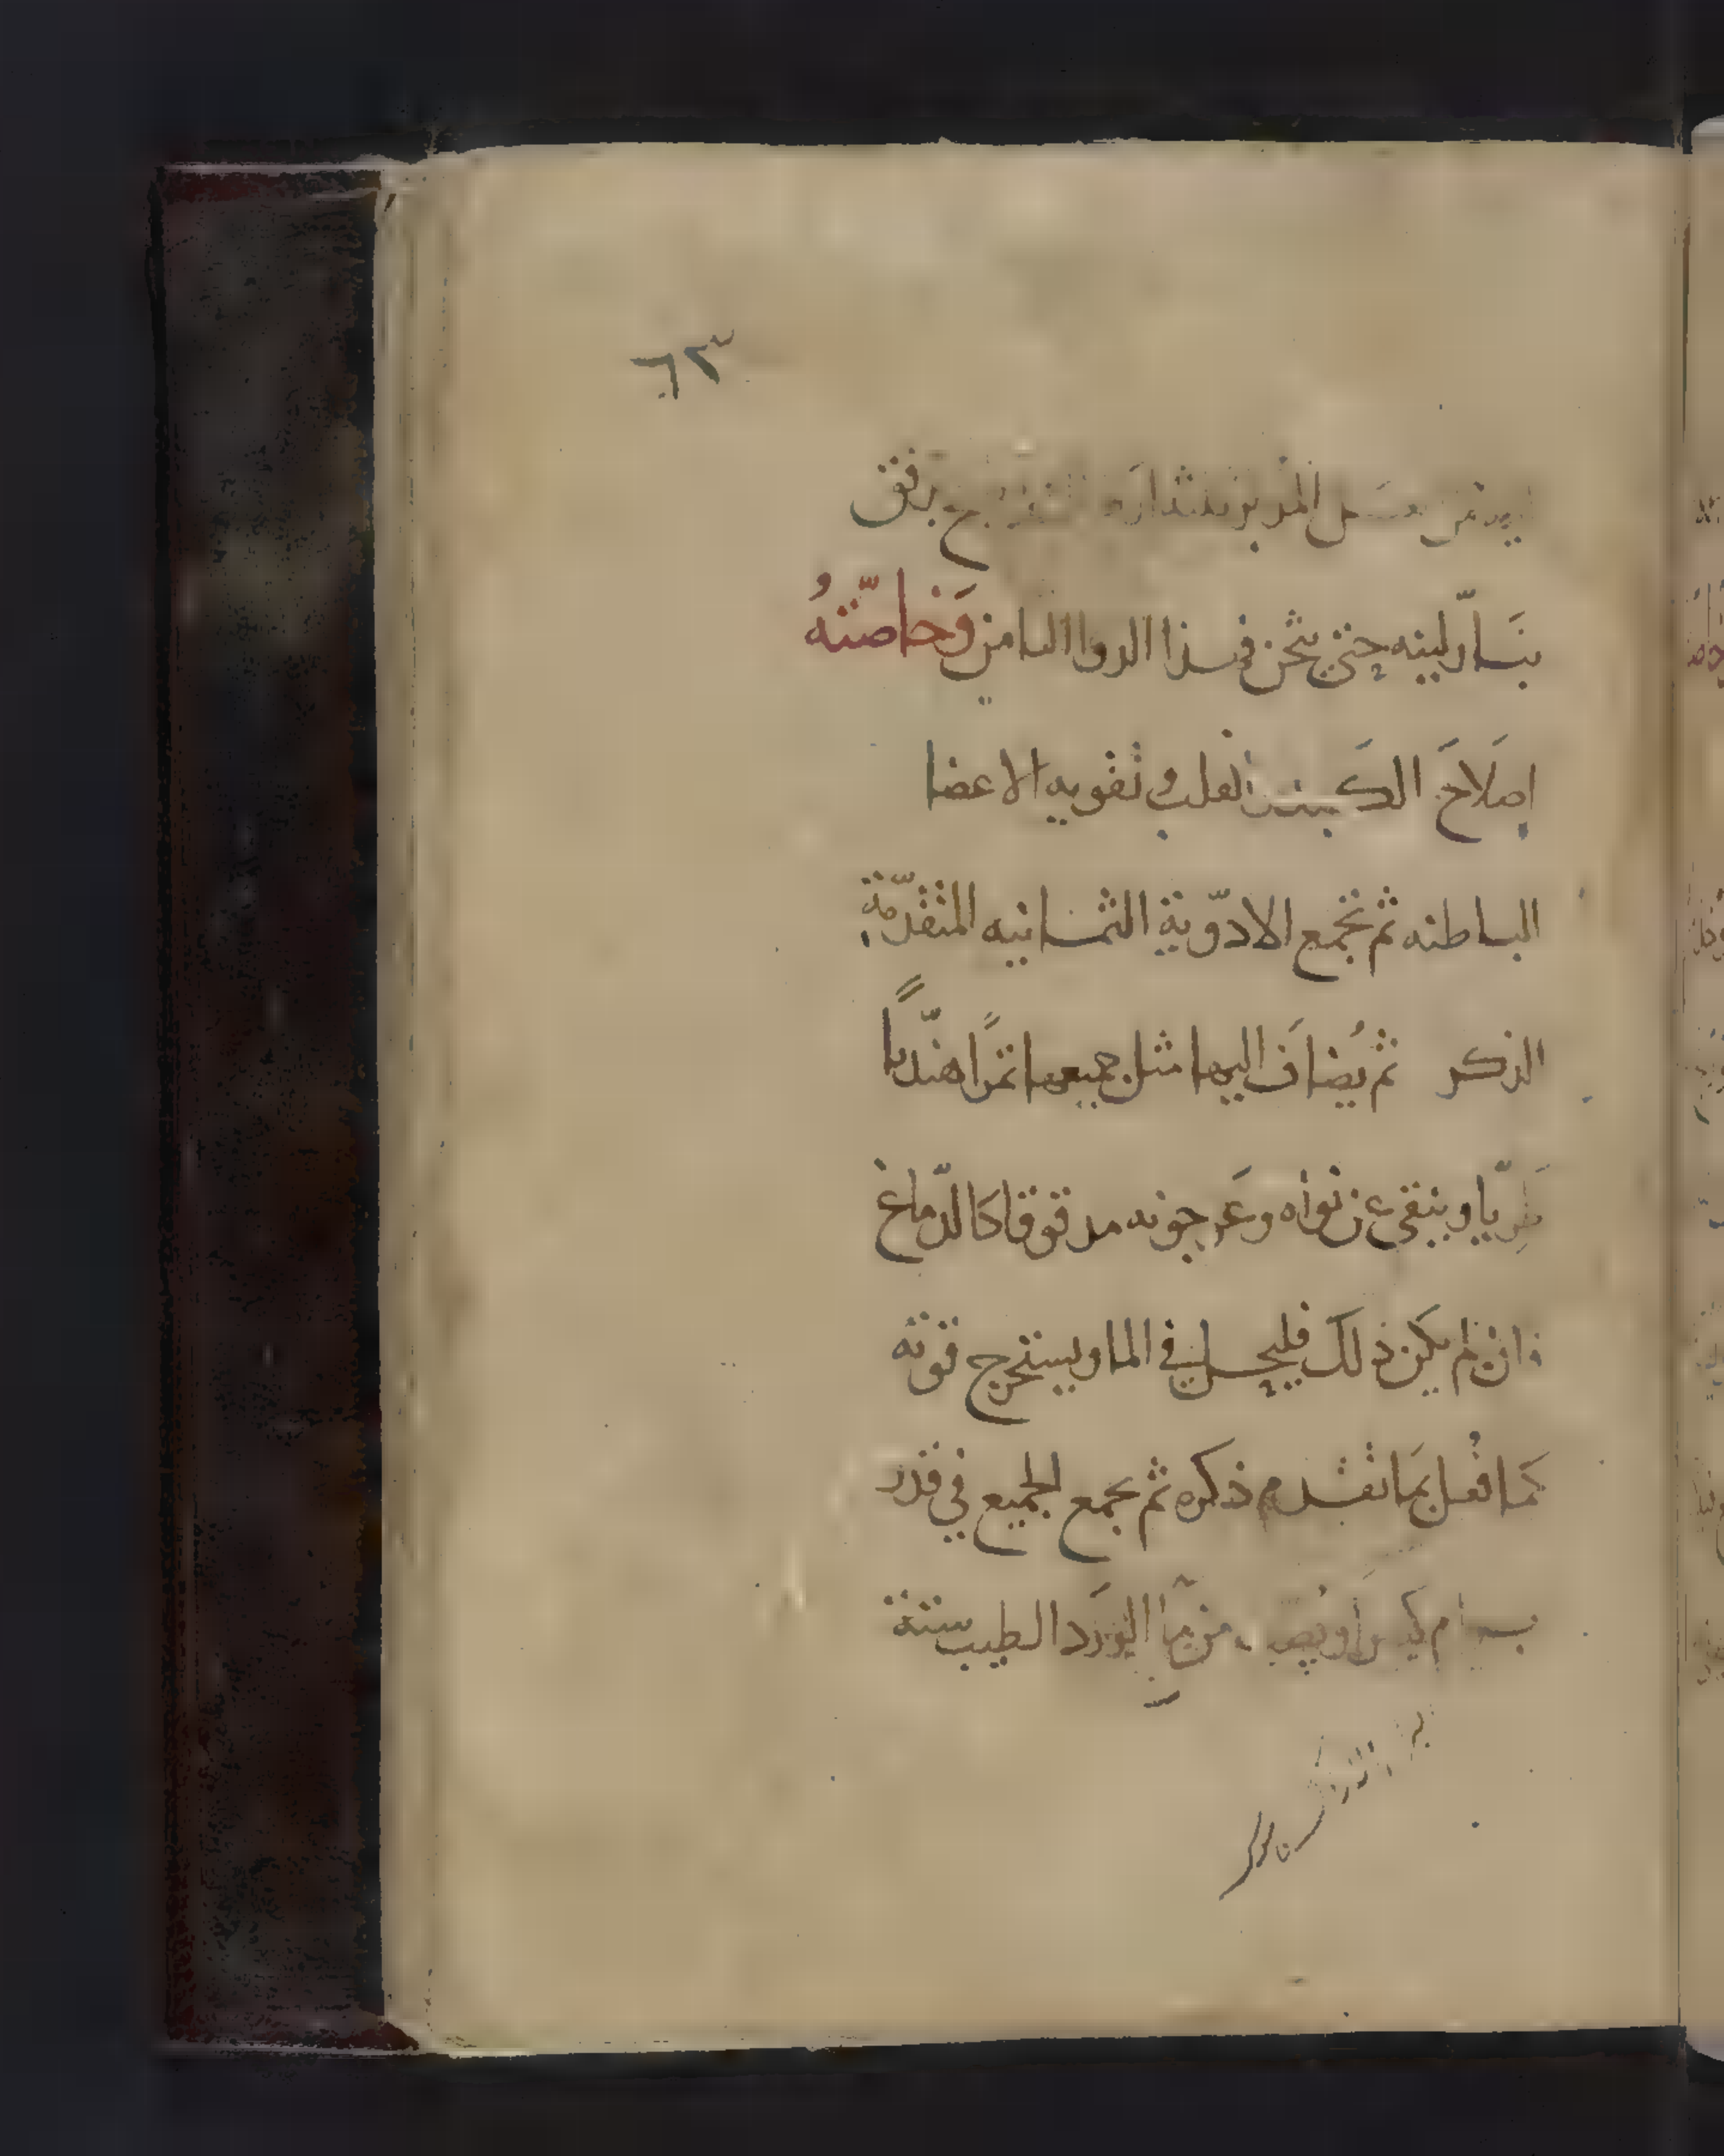 ٦٣
المد بر برفق
بنَارٍ لينه حتى يثخن فهذا الدوا الثامن وَخاصّتهُ
اصلاحَ الكبد القلب وتقويه الاعضا
الباطنه ثم تجمع الادوّية الثمانيه المتقدّمة
الذكر ثم يُضافَ اليها مثل جميعها تمرًا هندّيًا
طَرّيا وينقى عن نواه وعَرجونه مدقوقا كالدّماغ
فان لم يكن ذلك فليحل في الما ويستخرج قوته
كمَا فُعل بمَا تقدم ذكره ثم يجمع الجميع في قدر
برام من مآ الورَد الطيب ستة